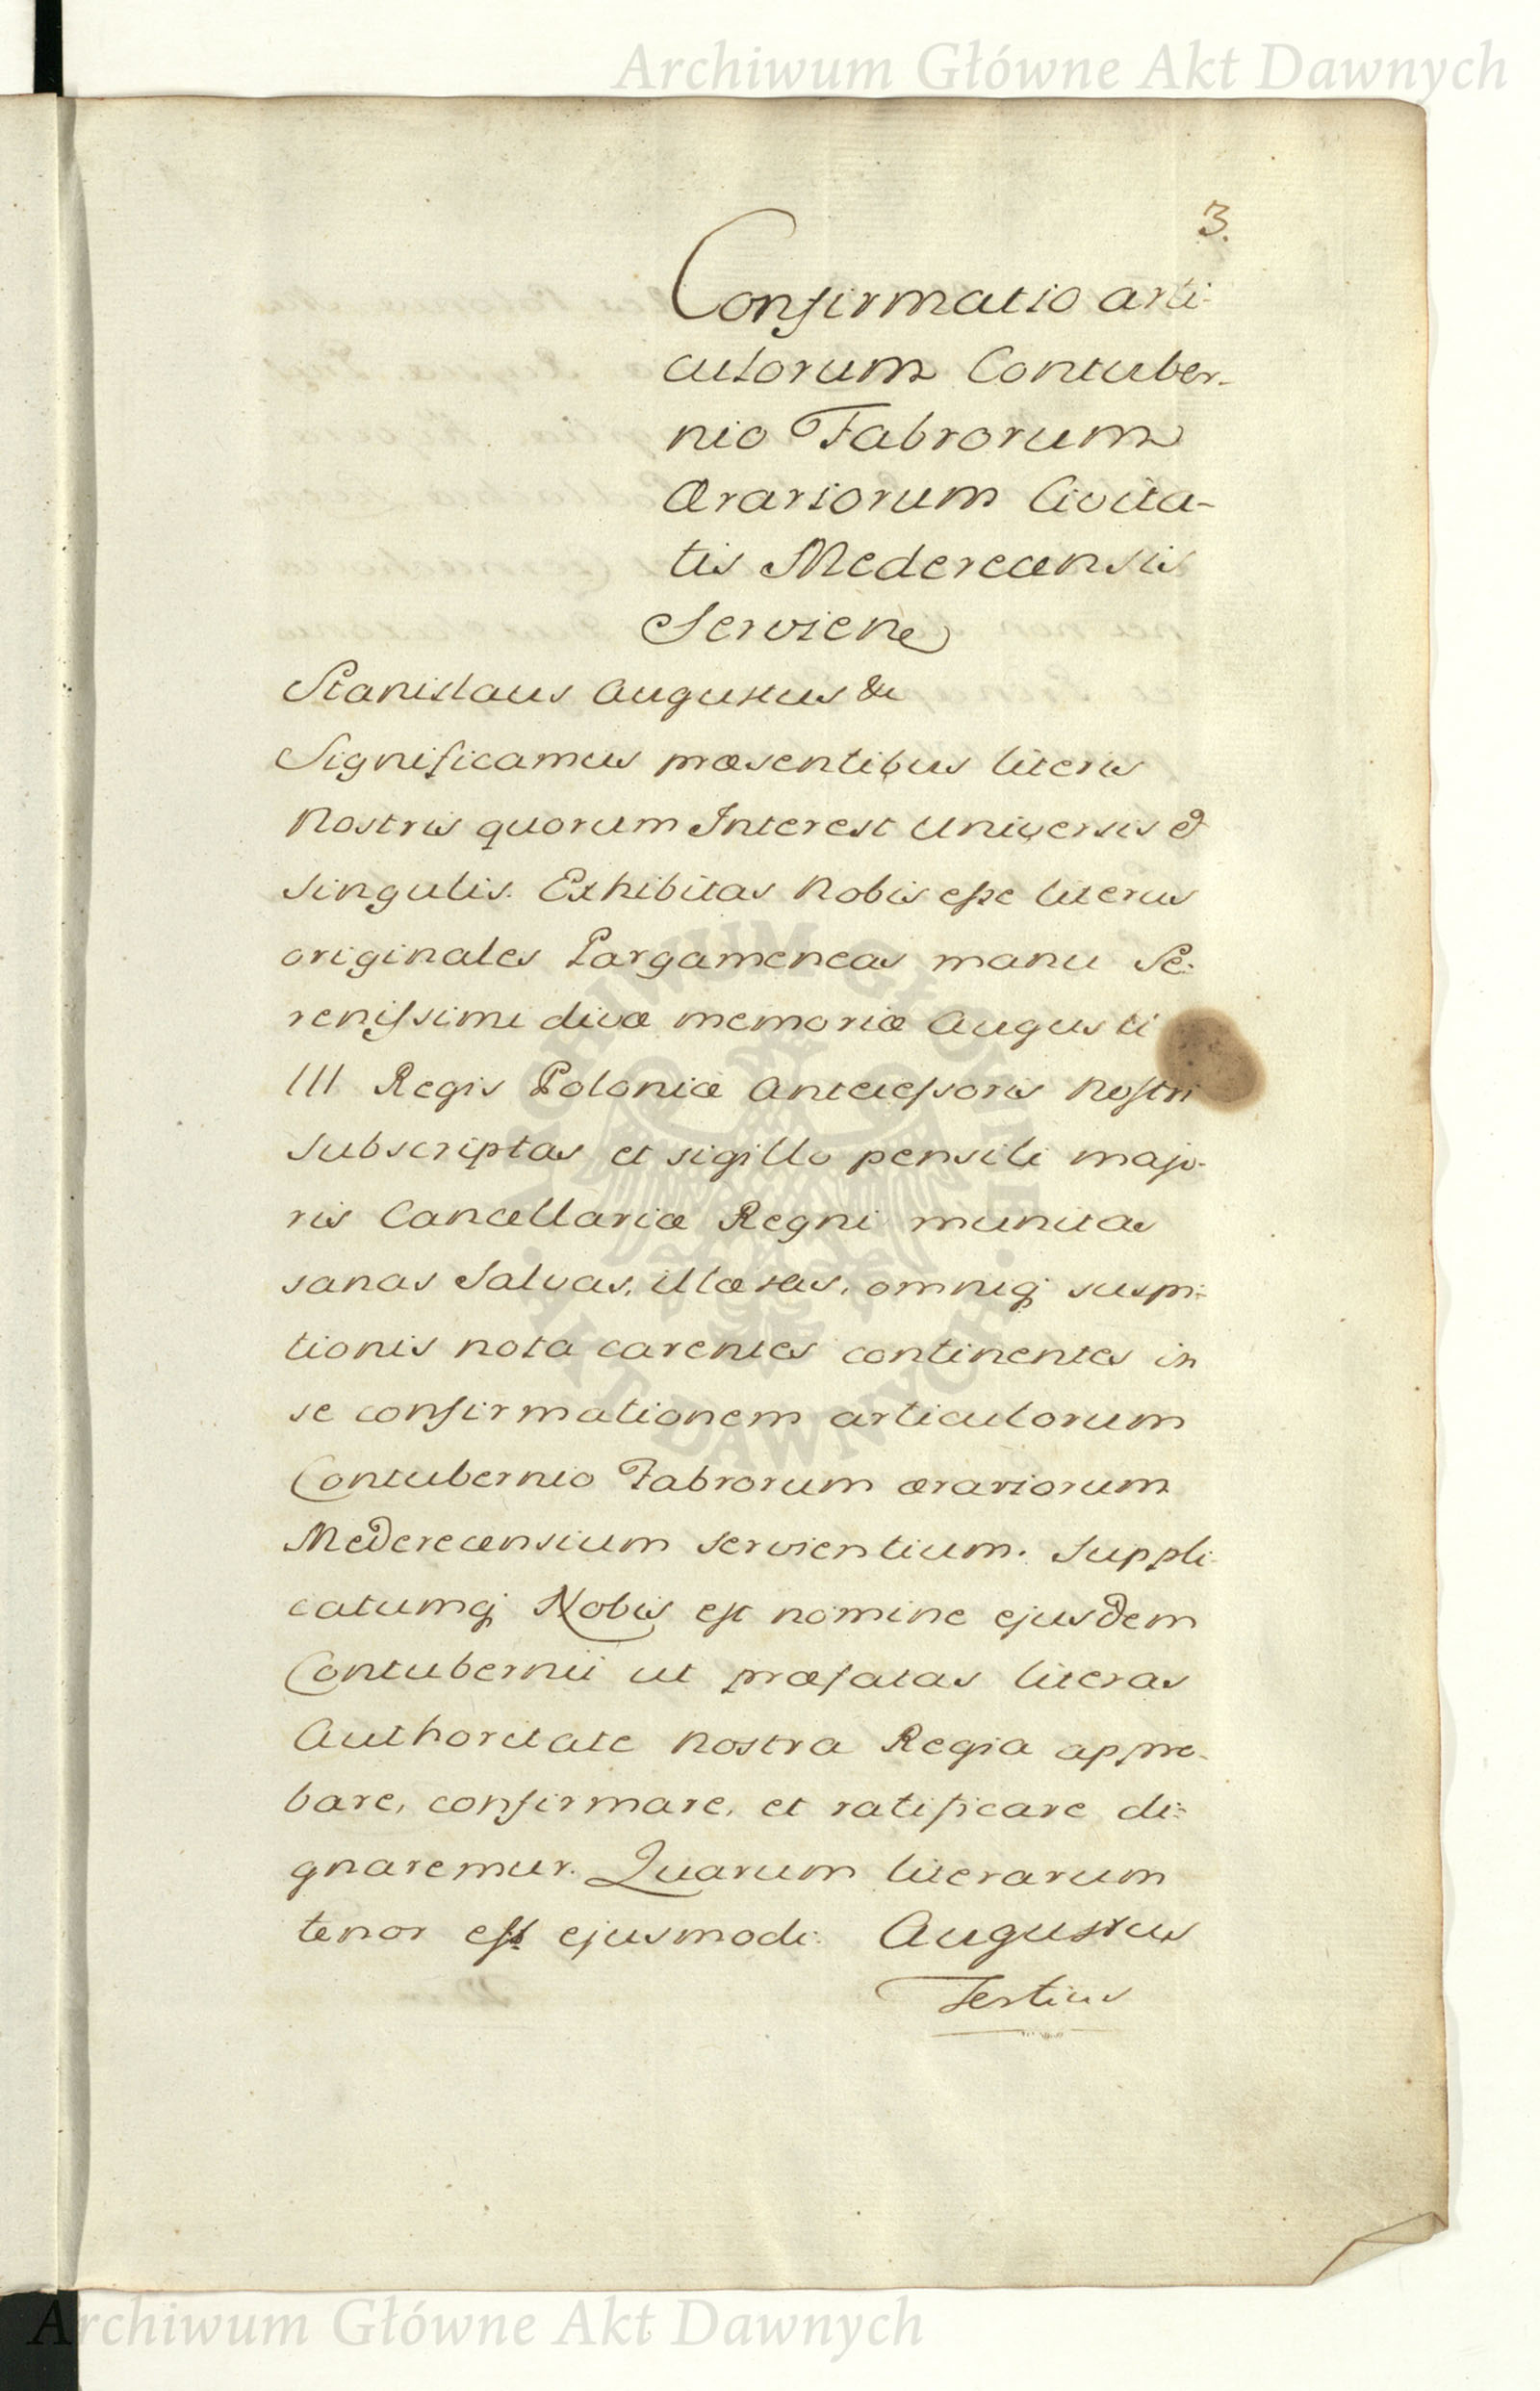 Archiwum Główne Akt Dawnych
3.
Confirmatio arti-
culorum Contuber-
nio Fabrorum
Ærariorum Civita-
tis Mederecensis
Serviens
Stanislaus Augustus &c
Significamus præsentibus literis
Nostris quorum Interest Universis &
singulis. Exhibitas Nobis esse literas
originales Pargameneas manu Se-
renissimi divæ memoriæ Augusti
III Regis Poloniæ Antecessoris Nostri
subscriptas et sigillo pensili majo-
ris Cancellariæ Regni munitas
sanas salvas, illæsas, omniq; suspi-
tionis nota carentes continentes in
se confirmationem articulorum
Contubernio Fabrorum ærariorum
Mederecensium servientium. Suppli-
catumq; Nobis est nomine ejusdem
Contubernii ut præfatas literas
Authoritate Nostra Regia appro-
bare, confirmare, et ratificare di-
gnaremur. Quarum literarum
tenor est ejusmodi: Augustus
Tertius
ARCHIWUM GŁÓWNE
· AKT DAWNYCH ·
Archiwum Główne Akt Dawnych